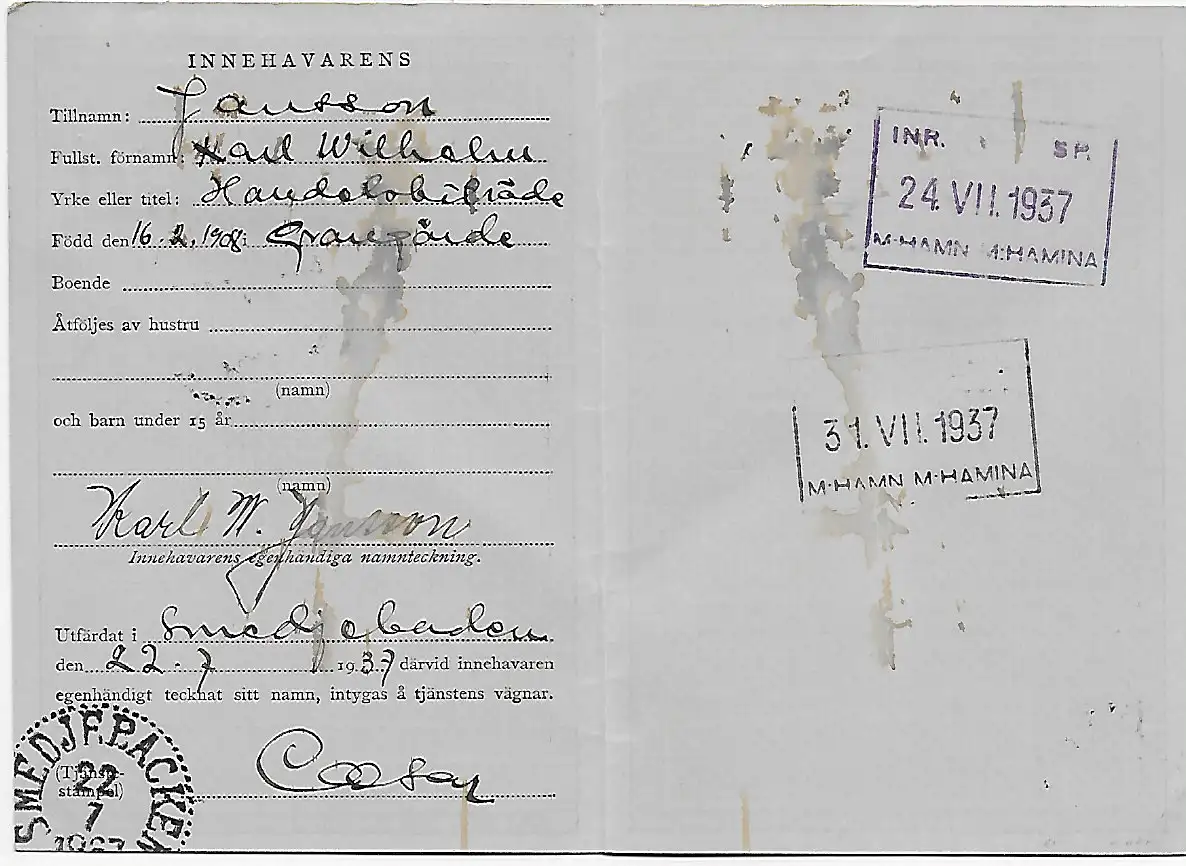 INNEHAVARENS
Tillnamn: Jansson
Fullst. förnamn: Karl Wilhelm
Yrke eller titel: Handelsbiträde
Född den 16.2.1908 i Grangärde
Boende
Åtföljes av hustru
(namn)
och barn under 15 år
(namn)
Karl W. Jansson
Innehavarens egenhändiga namnteckning.
Utfärdat i Smedjebacken
den 22-7 1937 därvid innehavaren
egenhändigt tecknat sitt namn, intygas å tjänstens vägnar.
(Tjänste-
stämpel)
SMEDJEBACKEN
22
7
1937
INR. SP.
24.VII.1937
M·HAMN M:HAMINA
31.VII.1937
M·HAMN M·HAMINA